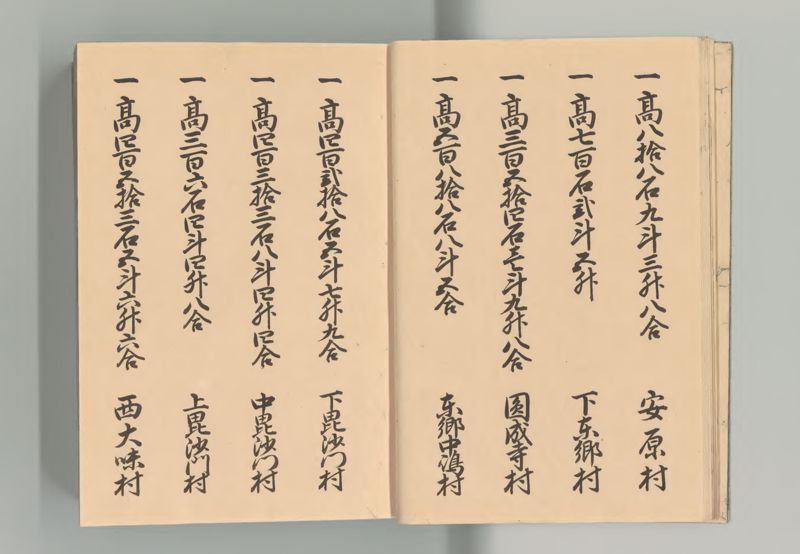 一高八拾八石九斗三升八合 安原村
一高七百石弐斗五升 下东郷村
一高三百五拾四石壱斗九升八合 圓成寺村
一高五百八拾八石八斗五合 东郷中嶋村
一高四百弐拾八石五斗七升九合 下毘沙门村
一高四百三拾三石八斗四升四合 中毘沙门村
一高三百六石四斗四升八合 上毘沙门村
一高四百五拾三石五斗六升六合 西大味村